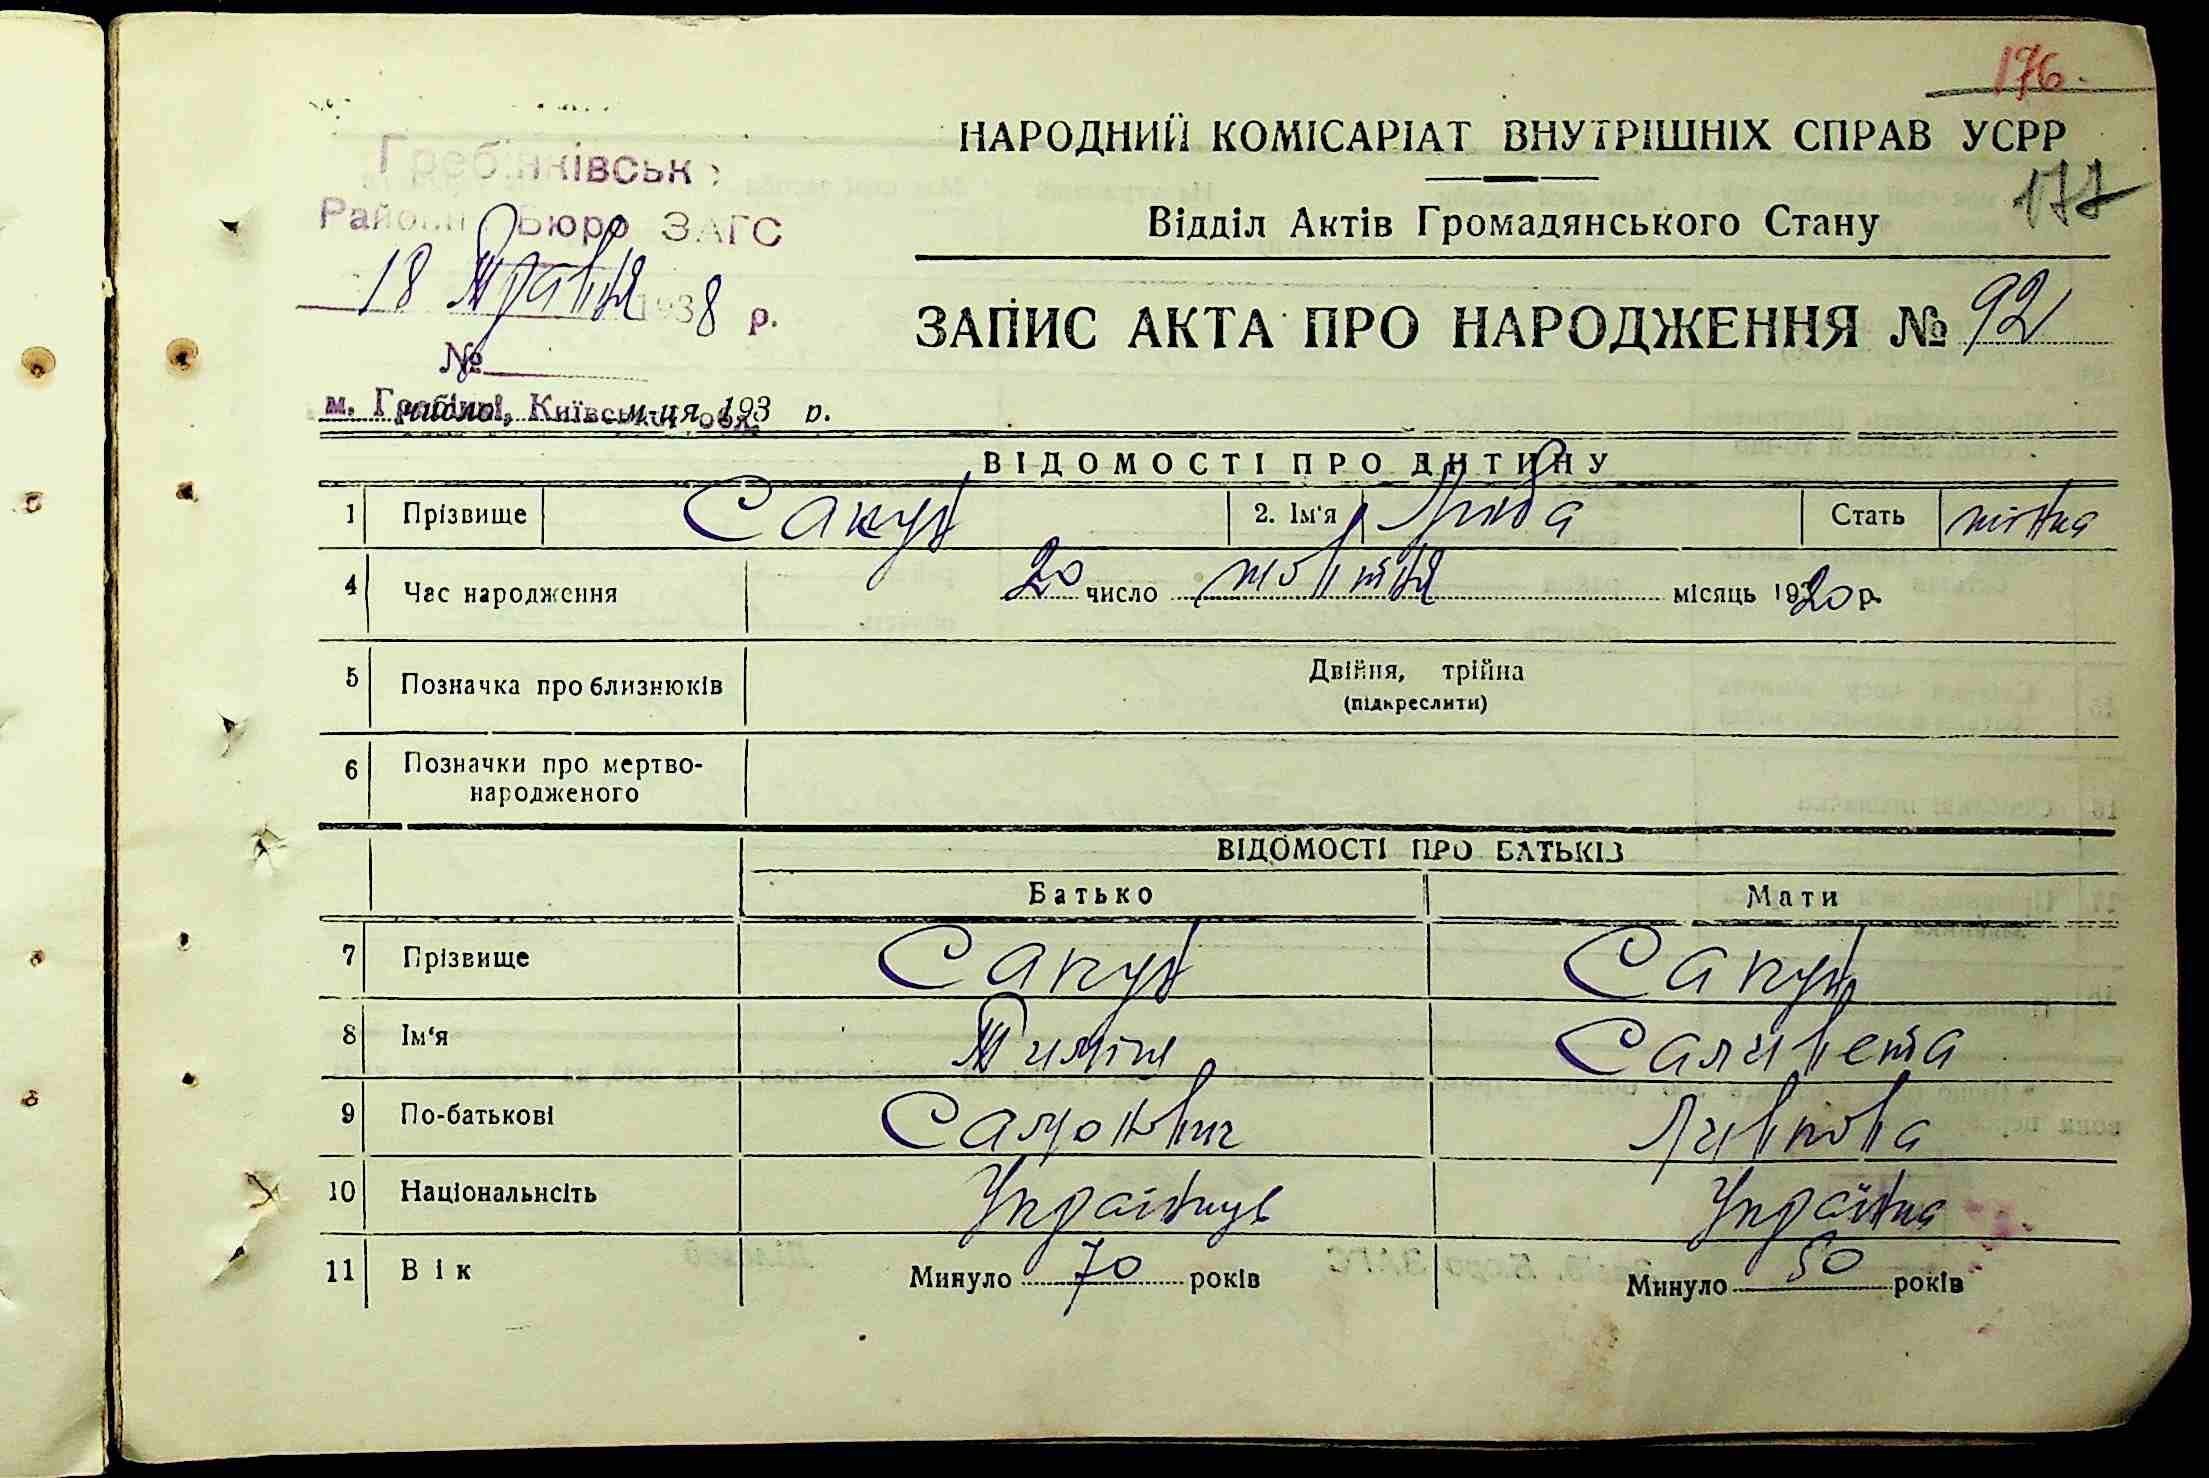 176
НАРОДНИЙ КОМІСАРІАТ ВНУТРІШНІХ СПРАВ УСРР
177
Відділ Актів Громадянського Стану
Гребінківськ
Район Бюро ЗАГС
18 травня 1938 р.
№
м. Гребінки, Київської обл.
число м-ця 193 р.
ЗАПИС АКТА ПРО НАРОДЖЕННЯ № 92
ВІДОМОСТІ ПРО ДИТИНУ
1 Прізвище Сакун 2. Ім'я Стать жінка
4 Час народження 20 число жовтня місяць 1920 р.
5 Позначка про близнюків Двійня, трійня
(підкреслити)
6 Позначки про мертво-
народженого
ВІДОМОСТІ ПРО БАТЬКІВ
Батько Мати
7 Прізвище Сакун Сакун
8 Ім'я Тиміш Саливета
9 По-батькові Самонович
10 Національнсіть Українець Українка
11 Вік Минуло 70 років Минуло 50 років